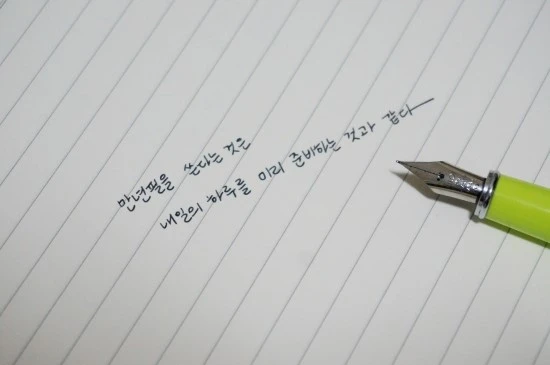 만년필을 쓴다는 것은
내일의 하루를 미리 준비하는 것과 같다